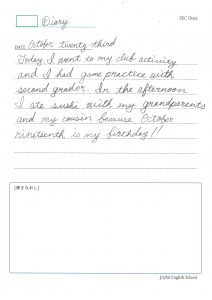 Diary
SEC Diary
DATE October twenty third
Today I went to my club activity
and I had game practice with
second grader. In the afternoon
I ate sushi with my grandparents
and my cousin because October
nineteenth is my birthday!!
[書きなおし]
Joyful English School